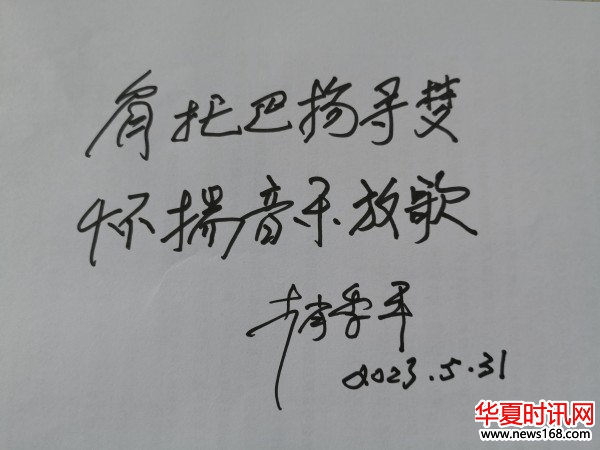 肩托巴扬寻梦
怀揣音乐放歌
2023.5.31
华夏时讯网
www.news168.com